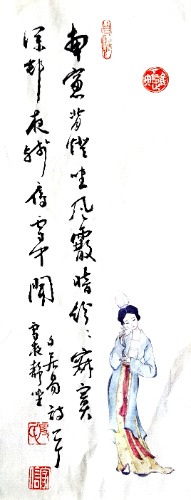 南窗背燈坐風霰暗紛々寂寞
深邨夜殘雁雪中聞
白居易詩
雪夜靜坐